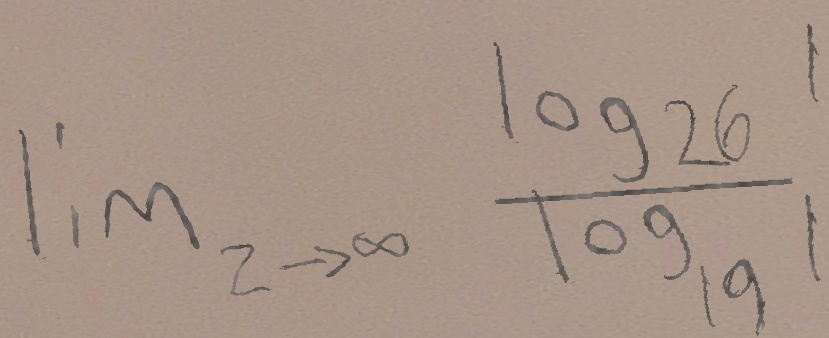 \lim_{z \to \infty} \frac{\log_{26} 1}{\log_{19} 1}